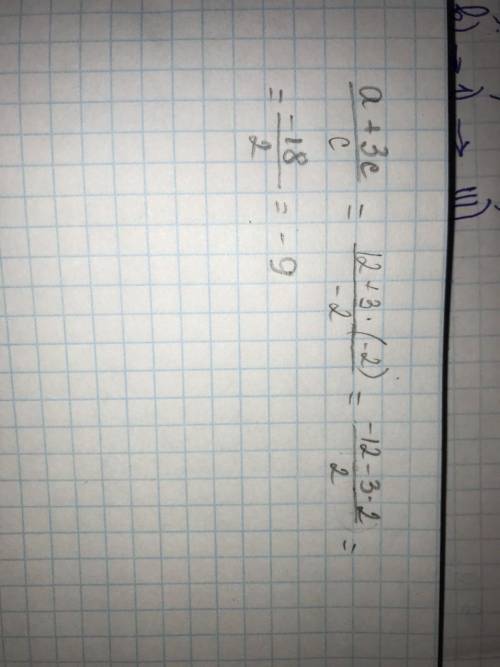 b) → 1) → III)
(a + 3c)/c = (12 + 3·(-2))/(-2) = (-12 - 3·2)/2 =
= (-18)/2 = -9